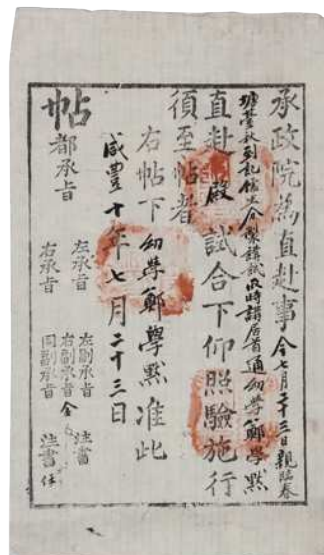 承政院為直赴事今七月二十三日親臨春
塘臺秋到記儒生合製講試取時講居首通幼學鄭學黙
直赴 殿 試合下仰照驗施行
須至帖者
右帖下 幼學鄭學黙准此
咸豊十年七月二十三日
帖
都承旨
左承旨
右承旨
左副承旨
右副承旨 金
同副承旨
注書
注書 任